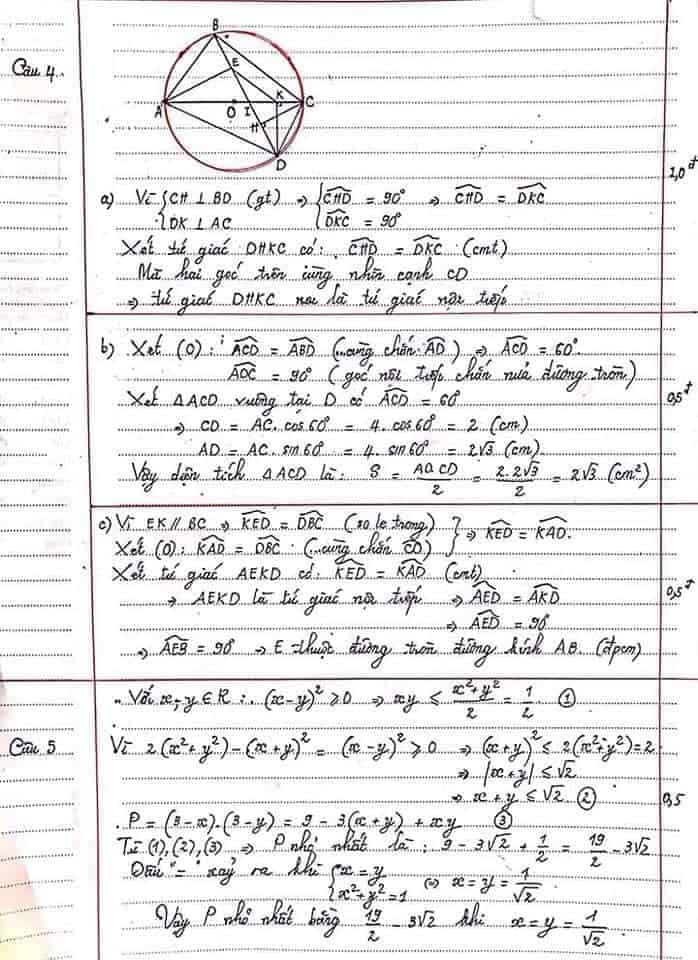 Câu 4.
B
E
A
O
I
K
C
H
D
1,0đ
a) Vì { CH ⊥ BD (gt) ⇒ { \widehat{CHD} = 90° ⇒ \widehat{CHD} = \widehat{DKC}
DK ⊥ AC \widehat{DKC} = 90°
Xét tứ giác DHKC có: \widehat{CHD} = \widehat{DKC} (cmt)
Mà hai góc trên cùng nhìn cạnh CD
⇒ tứ giác DHKC là tứ giác nội tiếp
b) Xét (O): \widehat{ACD} = \widehat{ABD} (...cùng chắn AD) ⇒ \widehat{ACD} = 60°.
\widehat{ADC} = 90° (góc nội tiếp chắn nửa đường tròn)
Xét ΔACD vuông tại D có \widehat{ACD} = 60° 0,5đ
⇒ CD = AC. cos 60° = 4. cos 60° = 2 (cm)
AD = AC. sin 60° = 4. sin 60° = 2√3 (cm).
Vậy diện tích ΔACD là: S = \frac{AD.CD}{2} = \frac{2.2√3}{2} = 2√3 (cm²)
c) Vì EK // BC ⇒ \widehat{KED} = \widehat{DBC} (so le trong) } ⇒ \widehat{KED} = \widehat{KAD}.
Xét (O): \widehat{KAD} = \widehat{DBC} (...cùng chắn CD)
Xét tứ giác AEKD có: \widehat{KED} = \widehat{KAD} (cmt)
⇒ AEKD là tứ giác nội tiếp ⇒ \widehat{AED} = \widehat{AKD} 0,5đ
⇒ \widehat{AED} = 90°
⇒ \widehat{AEB} = 90° ⇒ E thuộc đường tròn đường kính AB. (đpcm)
. Với x, y ∈ R: (x-y)² ⩾ 0 ⇒ xy ≤ \frac{x²+y²}{2} = \frac{1}{2}. ①
Câu 5 Vì 2(x²+y²)-(x+y)² = (x-y)² ⩾ 0 ⇒ (x+y)² ≤ 2(x²+y²)=2
⇒ |x+y| ≤ √2
⇒ x+y ≤ √2 ② 0,5
. P = (3-x).(3-y) = 9 - 3(x+y) + xy ③
Từ (1),(2),(3) ⇒ P nhỏ nhất là: 9 - 3√2 + \frac{1}{2} = \frac{19}{2} - 3√2
Dấu "=" xảy ra khi { x = y ⇔ x = y = \frac{1}{√2}
x²+y²=1
Vậy P nhỏ nhất bằng \frac{19}{2} - 3√2 khi x = y = \frac{1}{√2}.